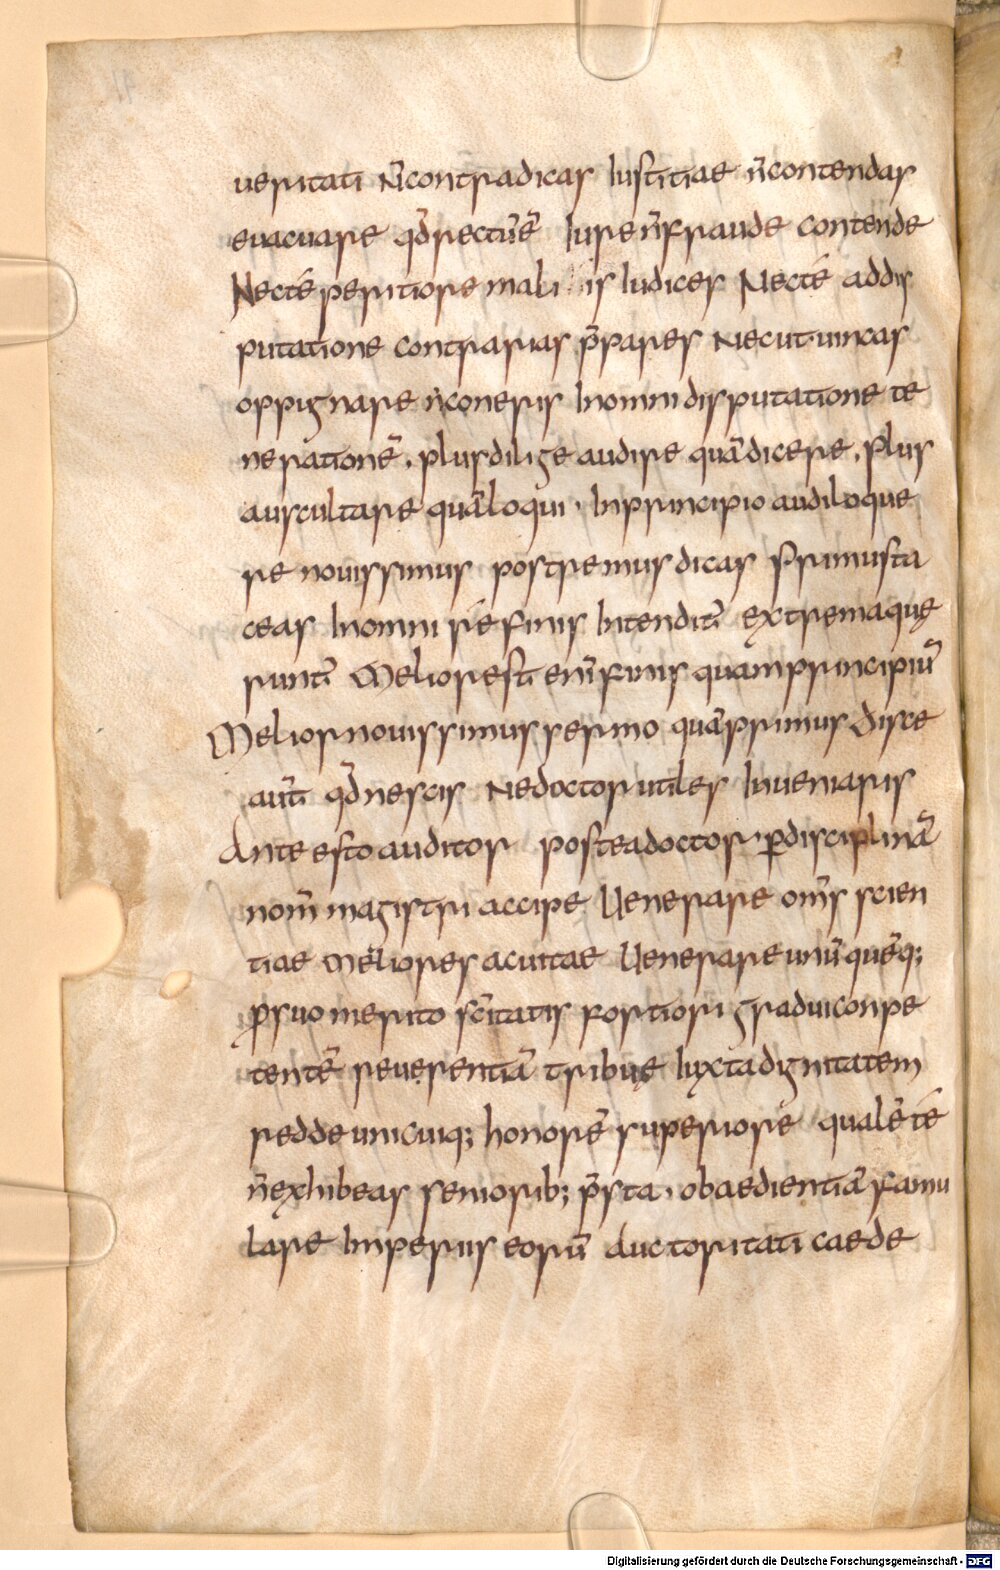 ueritati n̄contradicas Iustitiae n̄contendas
euacuare qd̄rectūē Iure n̄fraude contende
Necte peritiore mali iis Iudices Necte addis
putatione contrarias p̄pares Necut uincas
oppignare n̄coneris Inomni disputatione te
neratione. plusdilige audire quādicere. plus
auscultare quāloqui. Inprincipio audiloque
re nouissimus postremusdicas Primusta
ceas Inomni re finis Intenditū extremaque
runt̄ Meliorest enīfinis quamprincipiū
Meliornouissimus sermo quāprimus Disce
aut̄ qd̄nescis Nedoctor utiles Inueniaris
Ante esto auditor postea doctor p̱disciplinā
nom̄ magistri accipe Uenerare om̄s scien
tiae meliores acuitae Uenerare unūquēq;
p̱suo merito sc̄itatis fortiori graduiconpe
tentē reuerentiā tribue Iuxtadignitatem
redde unicuiq; honorē superiore qualē te
n̄exhibeas seniorib; p̄sta. obaedientiā famu
lare Imperiis eorū auctoritati caede
Digitalisierung gefördert durch die Deutsche Forschungsgemeinschaft - DFG